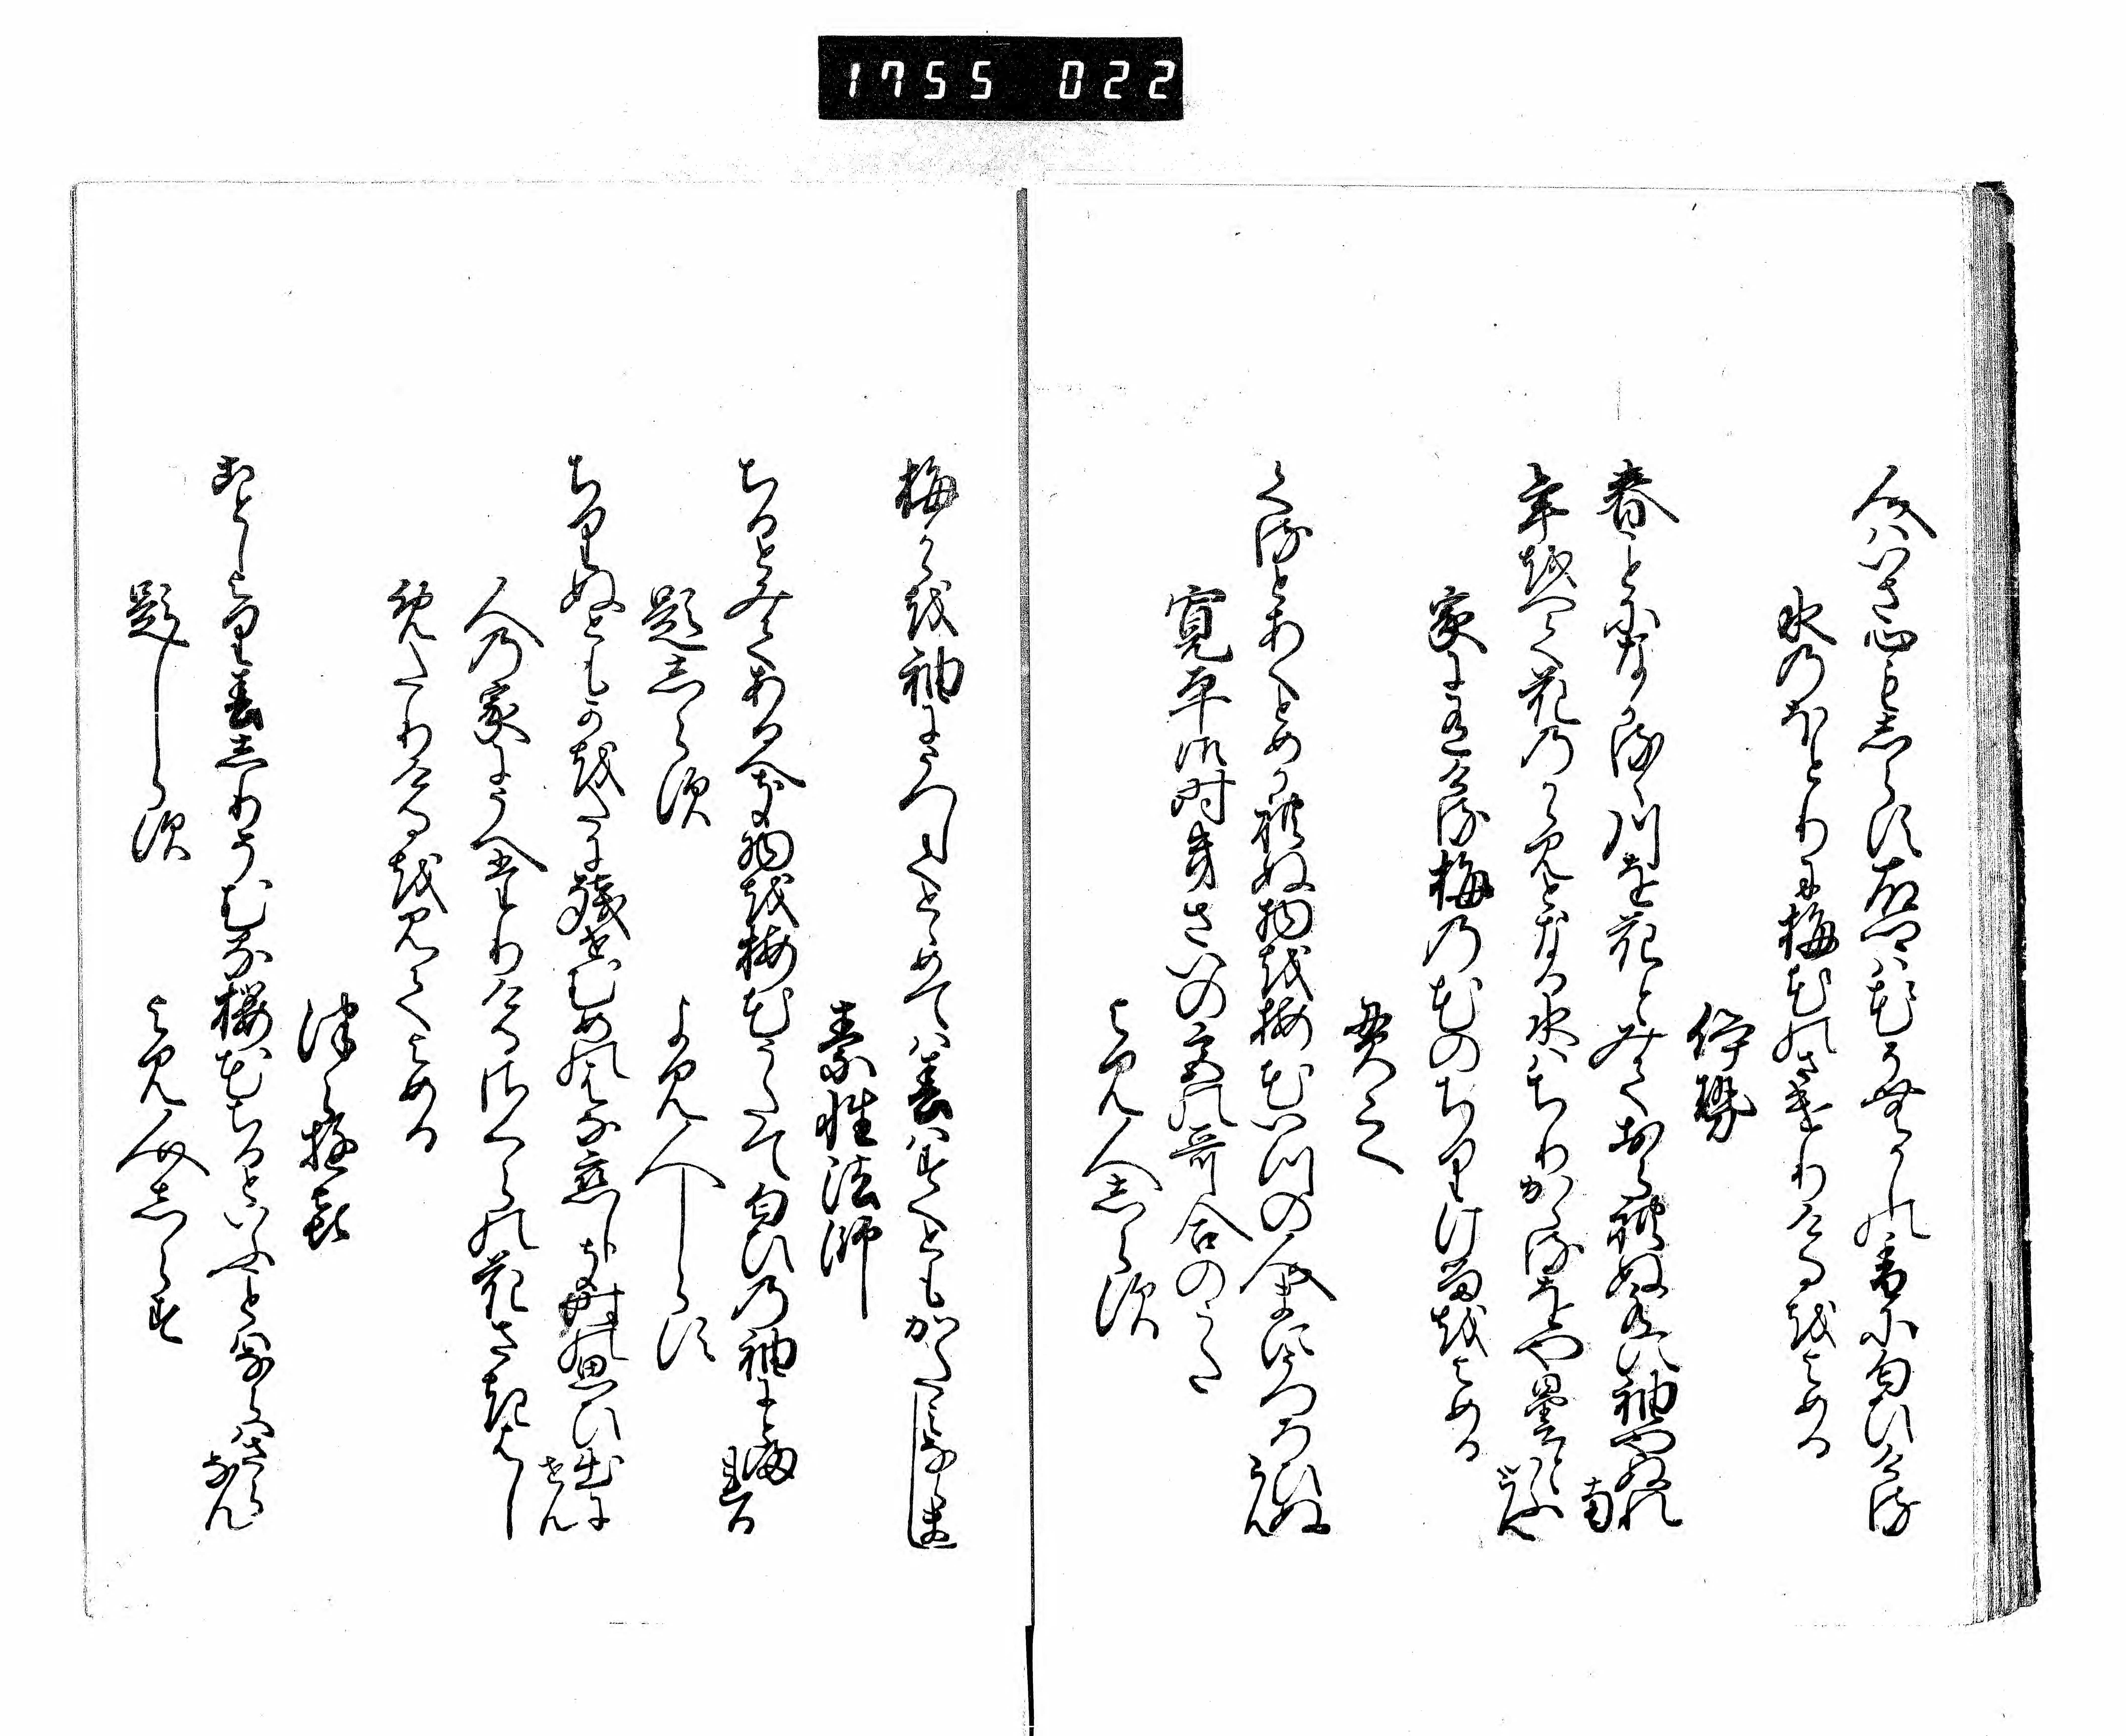 1755 022
人はいさ心もしらす故郷は花そ昔の香に匂ひける
水のほとりに梅花のさきわたりけるをよめる
伊勢
春ことになかるゝ川を花とみておられぬ水に袖やぬれ南
年をへて花のかゝみとなる水はちりかゝるをや曇るといふらん
家に有ける梅の花のちりけるをよめる
貫之
くるとあくとめかれぬ物を梅花いつの人まにうつろひぬらん
寛平御時きさいの宮の哥合のうた
よみ人しらす
梅かゝを袖にうつしてとめては春はすくともかたみならまし
素性法師
ちるとみてあるへき物を梅花うたて匂ひの袖にとまれる
題しらす
よみ人しらす
ちりぬともかをたに残せむめの花恋しき時の思ひ出にせん
人の家にうへたりけるさくらの花さきはしめたりけるを見てよめる
つらゆき
ことしより春しりそむる桜花ちるといふことはならはさらなん
題しらす
よみ人しらす